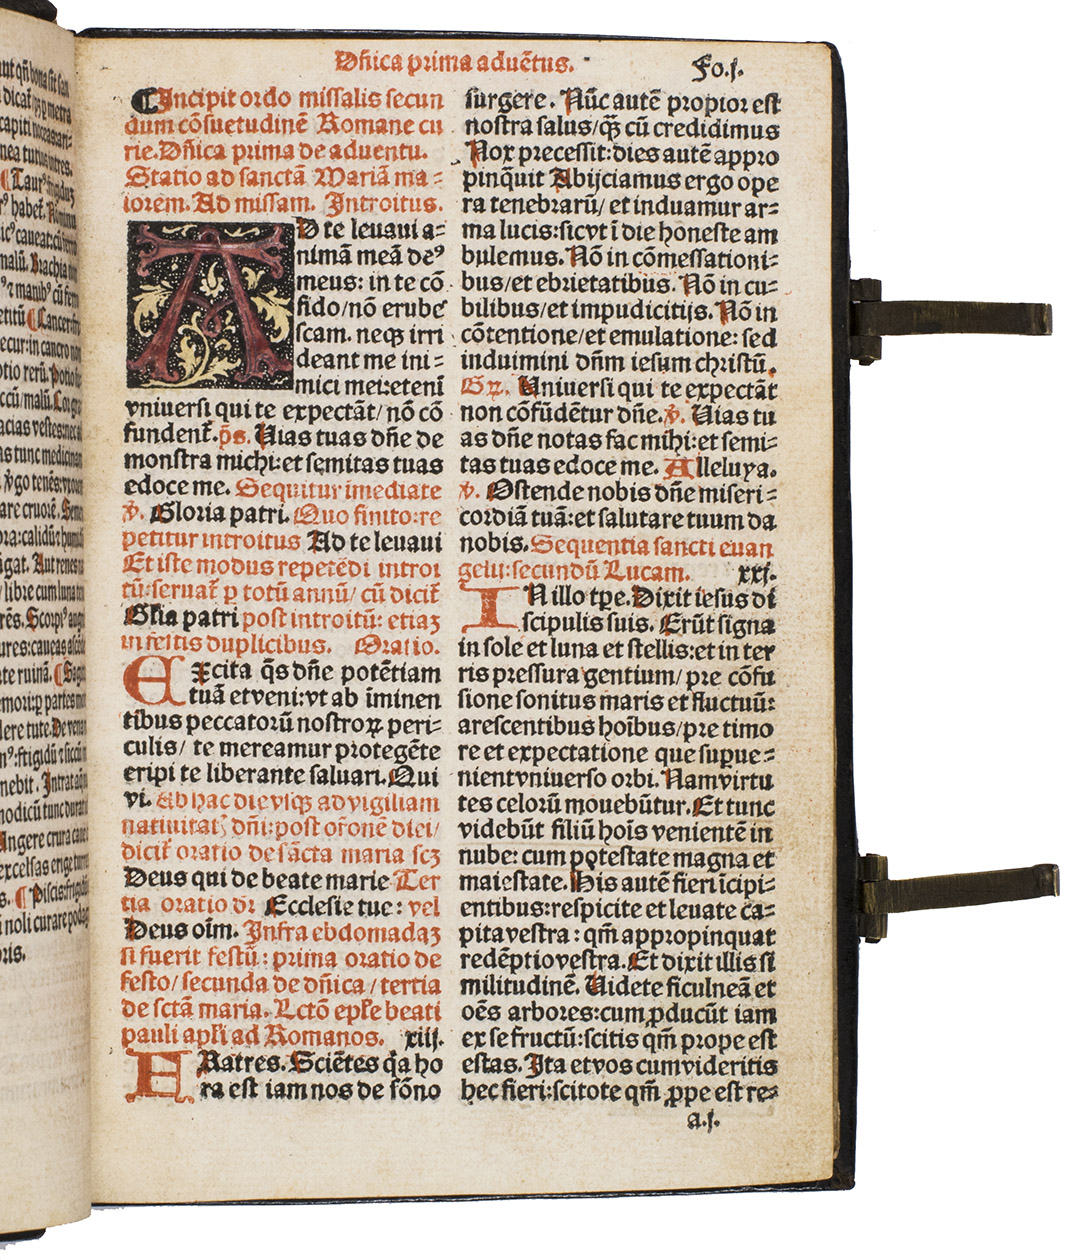 ut qñ bona sit san
capiti
Dñica prima aduētus.
Fo.j.
¶Incipit ordo missalis secun
dum cōsuetudinē Romane cu
rie. Dñica prima de aduentu.
Statio ad sanctā Mariā ma=
iorem. Ad missam. Introitus.
AD te leuaui a=
nimā meā de⁹
meus: in te cō
fido/nō erube
scam. neqꝫ irri
deant me ini=
mici mei:etenī
vniuersi qui te expectāt/nō cō
fundenť. p̄s. Uias tuas dñe de
monstra michi:et semitas tuas
edoce me. Sequitur imediate
℣. Gloria patri. Quo finito:re
petitur introitus Ad te leuaui
Et iste modus repetēdi introi
tū:seruať ꝑ totū annū/cū diciť
Glia patri post introitū: etiaꝫ
in festis duplicibus. Oratio.
EXcita q̄s dñe potētiam
tuā et veni:vt ab īminen
tibus peccatorū nostroꝝ peri=
culis/ te mereamur protegēte
eripi te liberante saluari. Qui
vi. Ab hac die vsqꝫ ad vigiliam
natiuitaꝭ dñi:post orōnē diei/
diciť oratio de sācta maria scꝫ
Deus qui de beate marie Ter
tia oratio dr̄ Ecclesie tue: vel
Deus oīm. Infra ebdomadaꝫ
si fuerit festū: prima oratio de
festo/secunda de dñica/tertia
de sctā maria. Lctō epłe beati
pauli apłi ad Romanos. xiij.
FRatres. Sciētes q̄a ho
ra est iam nos de sōno
surgere. Nūc autē propior est
nostra salus/q̄ꝫ cū credidimus
Nox precessit:dies autē appro
pinq̄uit Abijciamus ergo ope
ra tenebrarū/ et induamur ar=
ma lucis:sicvt ī die honeste am
bulemus. Nō in cōmessationi=
bus/et ebrietatibus. Nō in cu=
bilibus/et impudicitijs. Nō in
cōtentione/et emulatione: sed
induimini dñm iesum christū.
Gꝝ. Uniuersi qui te expectāt
non cōfūdētur dñe. ℣. Uias tu
as dñe notas fac mihi:et semi=
tas tuas edoce me. Alleluya.
℣. Ostende nobis dñe miseri=
cordiā tuā:et salutare tuum da
nobis. Sequentia sancti euan
gelij:secundū Lucam. xxj.
IN illo tp̄e. Dixit iesus di
scipulis suis. Erūt signa
in sole et luna et stellis:et in ter
ris pressura gentium/ pre cōfu
sione sonitus maris et fluctuū:
arescentibus hoībus/pre timo
re et expectatione que supue=
nient vniuerso orbi. Nam virtu
tes celorū mouebūtur. Et tunc
videbūt filiū hoīs venientē in
nube: cum potestate magna et
maiestate. His autē fieri īcipi=
entibus:respicite et leuate ca=
pita vestra: qm̄ appropinquat
redēptio vestra. Et dixit illis si
militudinē. Uidete ficulneā et
oēs arbores:cum ꝓducūt iam
ex se fructū:scitis qm̄ prope est
estas. Ita et vos cum videritis
hec fieri:scitote qm̄ ꝓpe est re=
a.j.